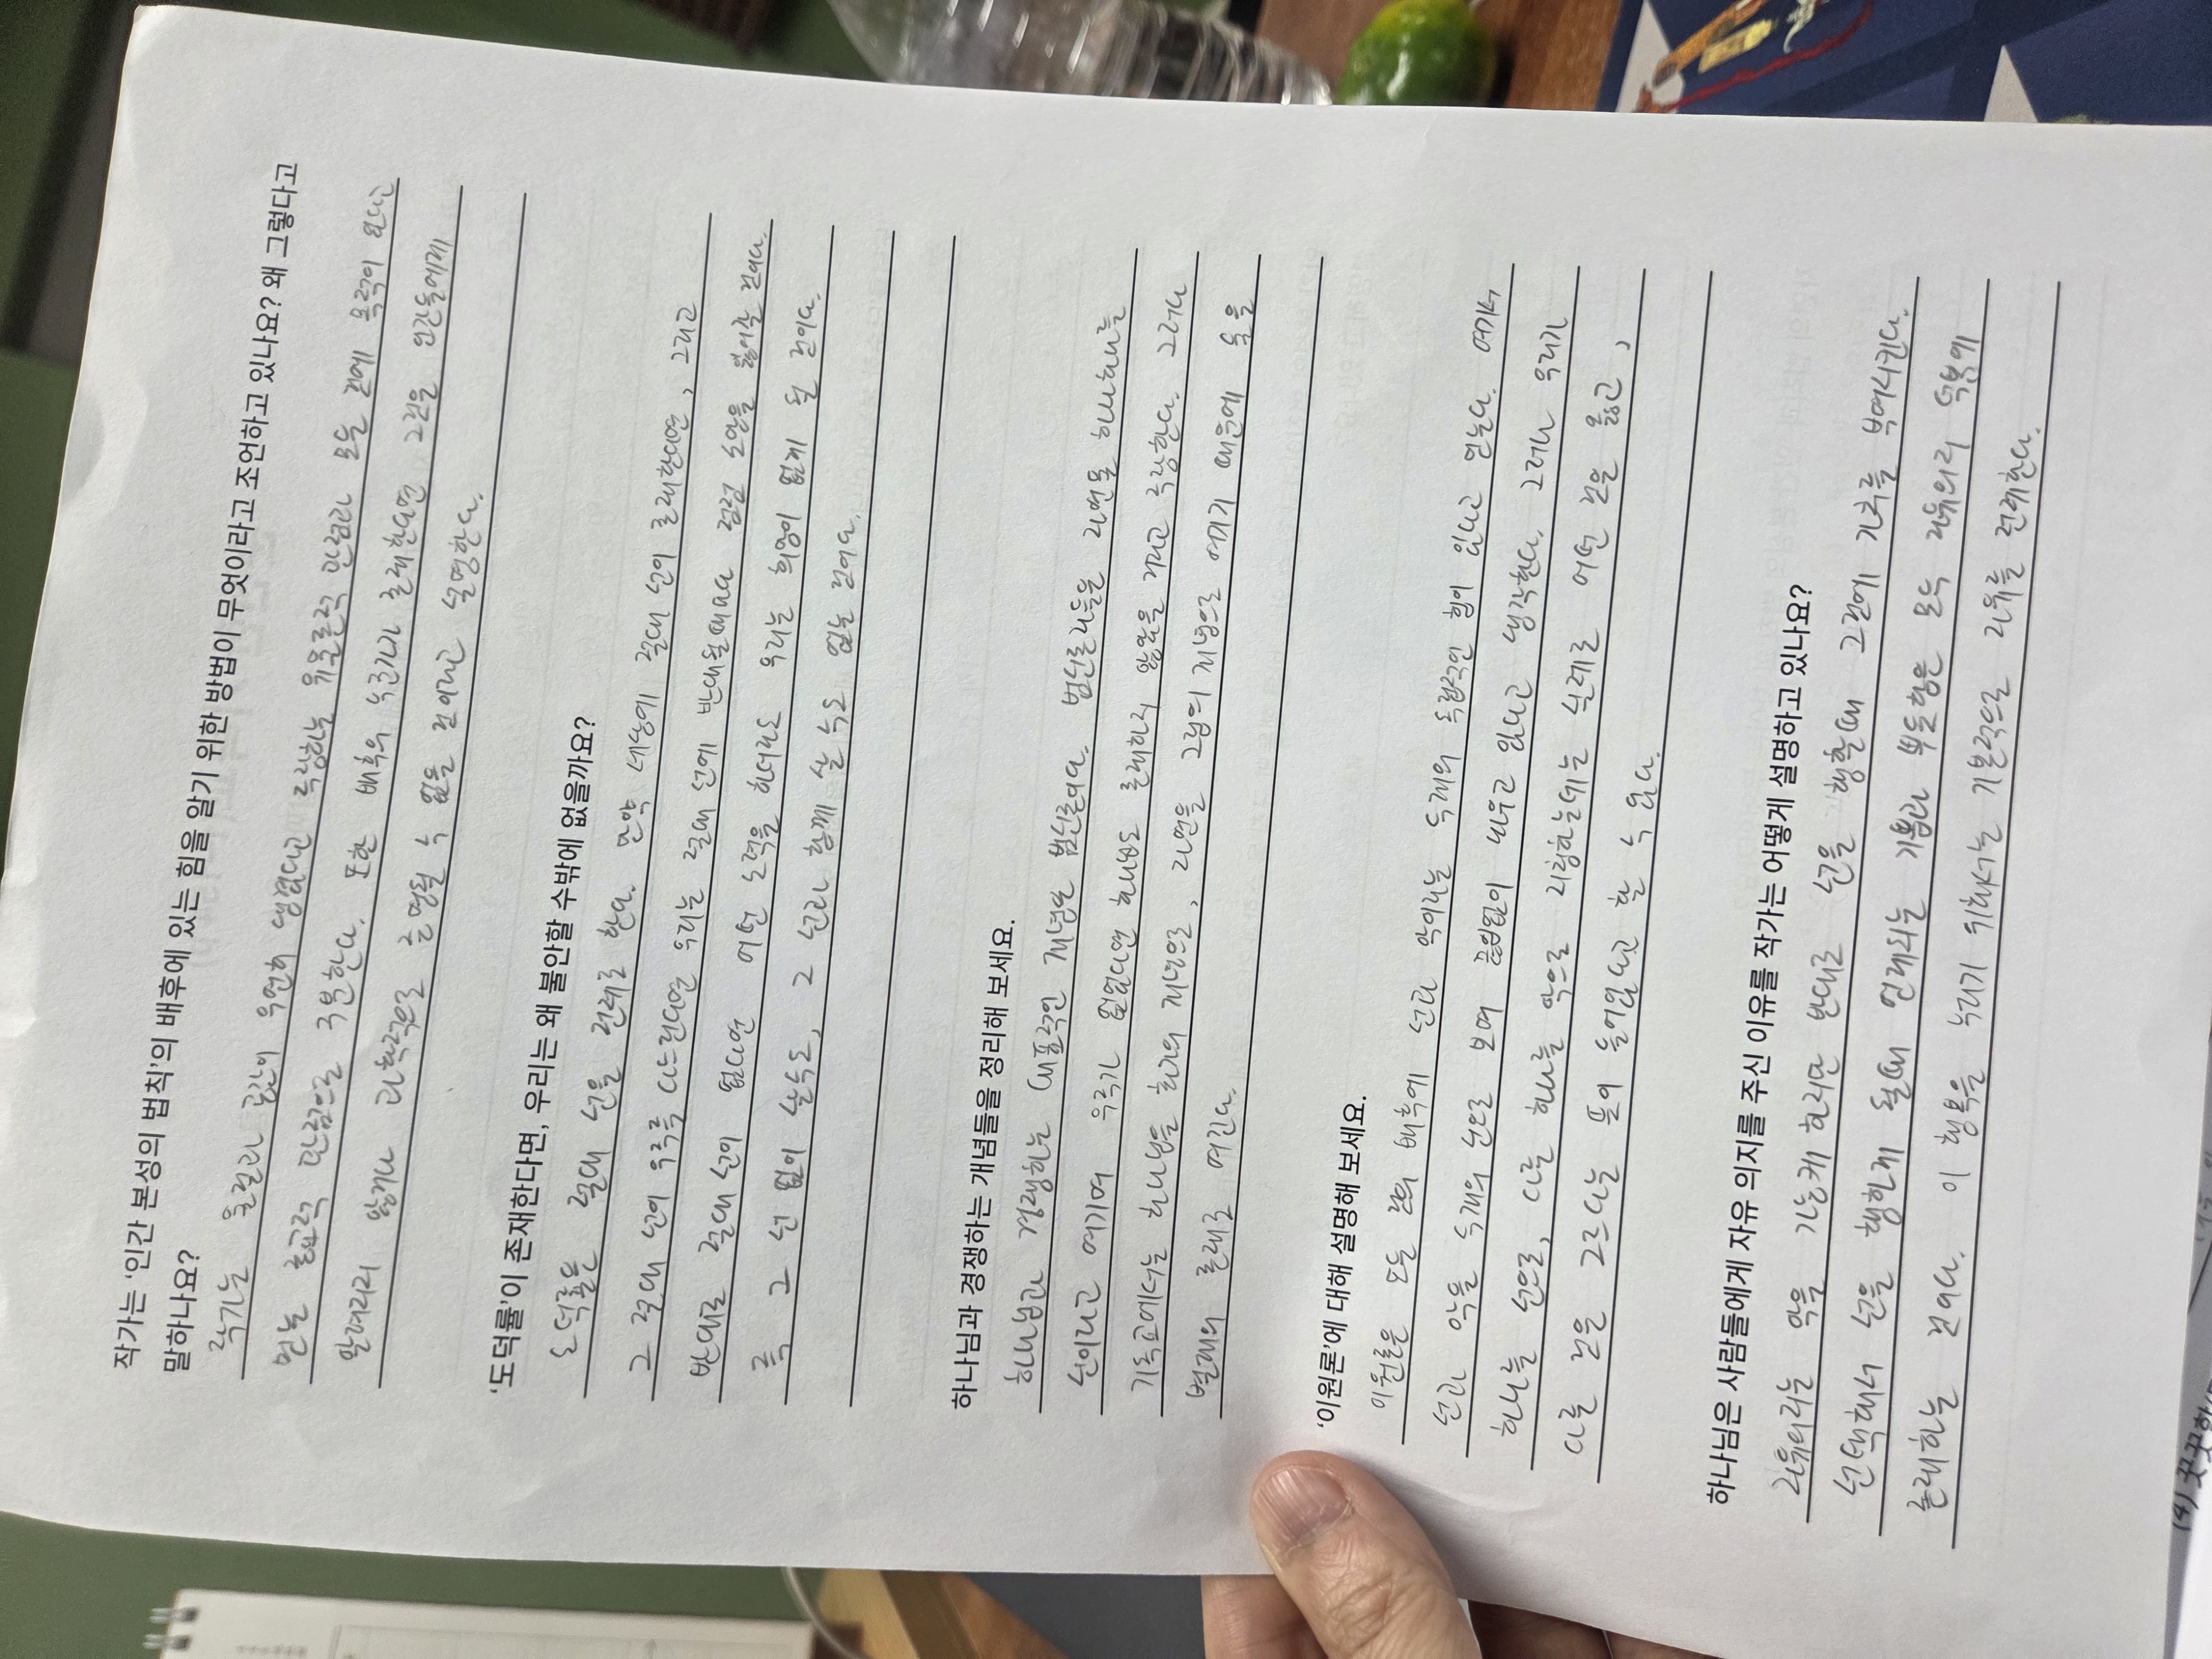 작가는 '인간 본성의 법칙'의 배후에 있는 힘을 알기 위한 방법이 무엇이라고 조언하고 있나요? 왜 그렇다고
말하나요?
작가는 물질과 공간이 우연히 생겼다고 주장하는 유물론적 관점과 모든 것에 목적이 있다고
믿는 종교적 관점으로 구분한다. 또한 배후의 누군가가 존재한다면 그것을 인간들에게
알려지지 않거나 과학적으로 증명될 수 없을 것이라고 설명한다.
'도덕률'이 존재한다면, 우리는 왜 불안할 수밖에 없을까요?
도덕률은 절대 선을 전제로 한다. 만약 세상에 절대 선이 존재한다면, 그리고
그 절대 선이 우주를 다스린다면 우리는 절대 선에 반대될때마다 점점 소망을 잃어갈 것이다.
반대로 절대 선이 없다면 어떤 노력을 하더라도 우리는 희망이 없게 될 것이다.
즉 그 선 없이 살수도, 그 선과 함께 살 수도 없는 것이다.
하나님과 경쟁하는 개념들을 정리해 보세요.
하나님과 경쟁하는 대표적인 개념은 범신론이다. 범신론자들은 자연을 하나하나를
선이라고 여기며 우주가 없었다면 하나님도 존재하지 않았을 거라고 주장한다. 그러나
기독교에서는 하나님을 최고의 개념으로, 자연을 그분의 개념으로 여기기 때문에 둘을
별개의 존재로 여긴다.
'이원론'에 대해 설명해 보세요.
이원론은 모든 것의 배후에 선과 악이라는 두개의 독립적인 힘이 있다고 믿는다. 여기서
선과 악을 두개의 신으로 보며 끊임없이 싸우고 있다고 생각한다. 그러나 우리가
하나는 선으로, 다른 하나를 악으로 지칭하는데는 실제로 어떤 것은 옳고,
다른 것은 그르다는 뜻이 들어있다고 할 수 있다.
하나님은 사람들에게 자유 의지를 주신 이유를 작가는 어떻게 설명하고 있나요?
자유의지는 악을 가능케 하지만 반대로 선을 행할때 그것에 가치를 부여시킨다.
선택해서 선을 행하게 될때 언제되는 기쁨과 뿌듯함은 모두 자유의지 덕분에
존재하는 것이다. 이 행복을 누리기 위해서는 기본적으로 자유를 전제한다.